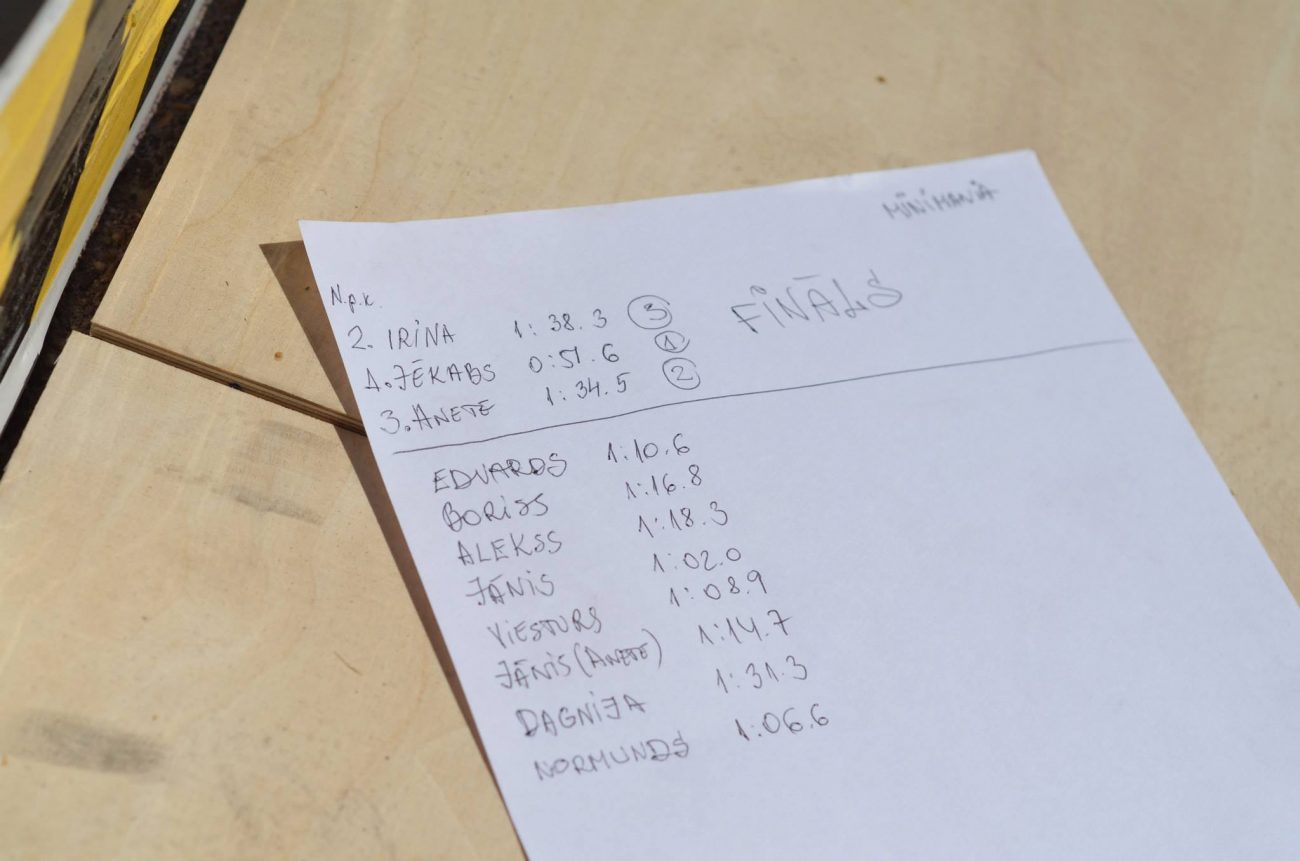 MINIMANIA
FINĀLS
N.p.k.
2. IRINA 1:38.3 3
1. JĒKABS 0:51.6 1
3. ANETE 1:34.5 2
EDVARDS 1:10.6
BORISS 1:16.8
ALEKSS 1:18.3
JĀNIS 1:02.0
VIESTURS 1:08.9
JĀNIS (ANETE) 1:14.7
DAGNIJA 1:31.3
NORMUNDS 1:06.6